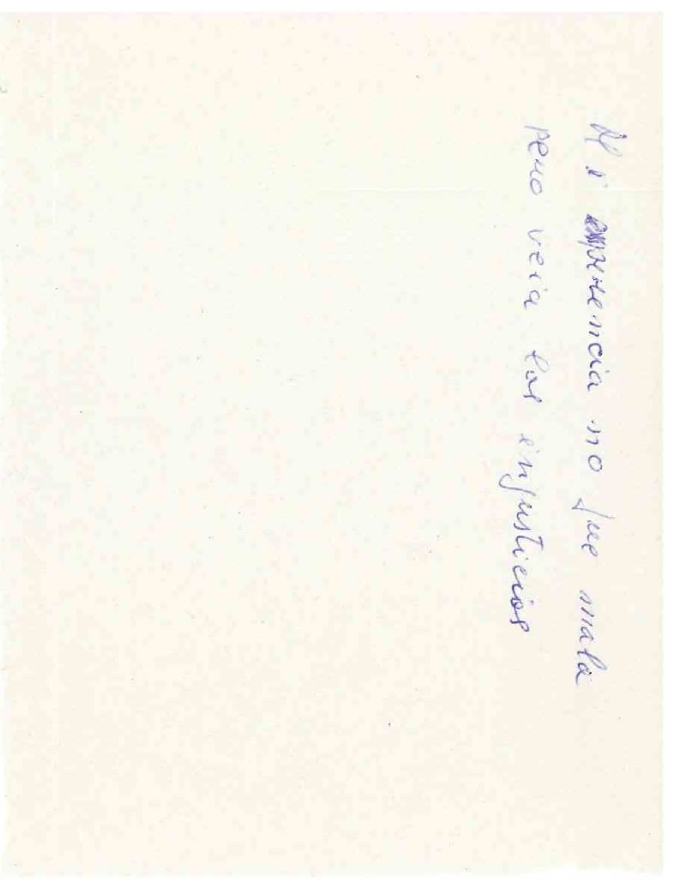 Mi experiencia no fue mala
pero veia las injusticias